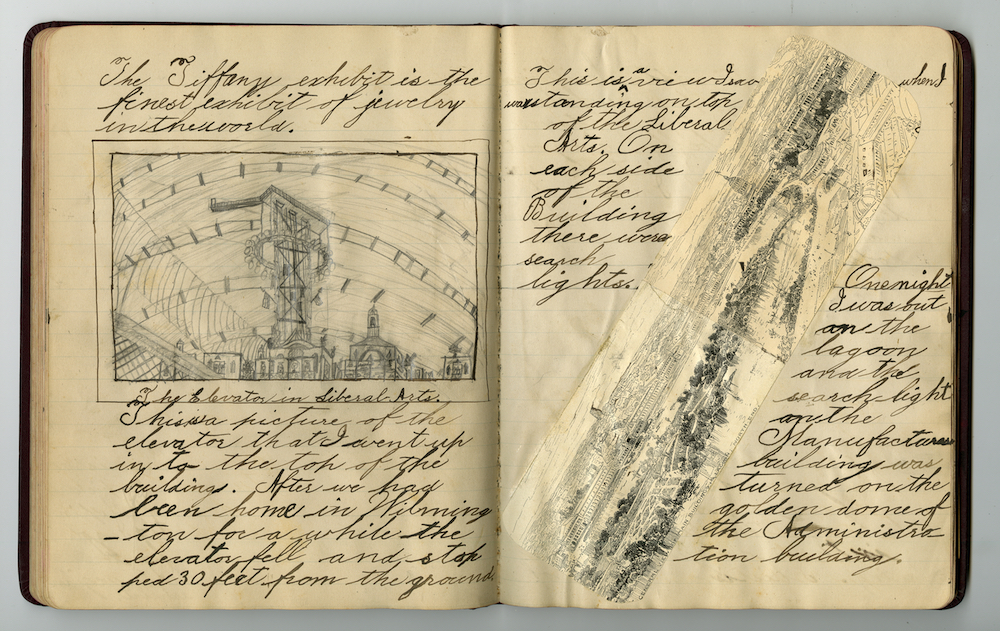 The Tiffany exhibit is the
finest exhibit of jewelry
in the world.
The Elevator in Liberal Arts.
This is a picture of the
elevator that I went up
in to the top of the
building. After we had
been home in Wilming
-ton for a while the
elevator fell and stop
ped 30 feet from the ground.
This is a view I saw when I
was standing on top
of the Liberal
Arts. On
each side
of the
Building
there were
search
lights.
One night
I was out
on the
lagoon
and the
search-light
on the
Manufactures
building was
turned on the
golden dome of
the Administra
tion building.